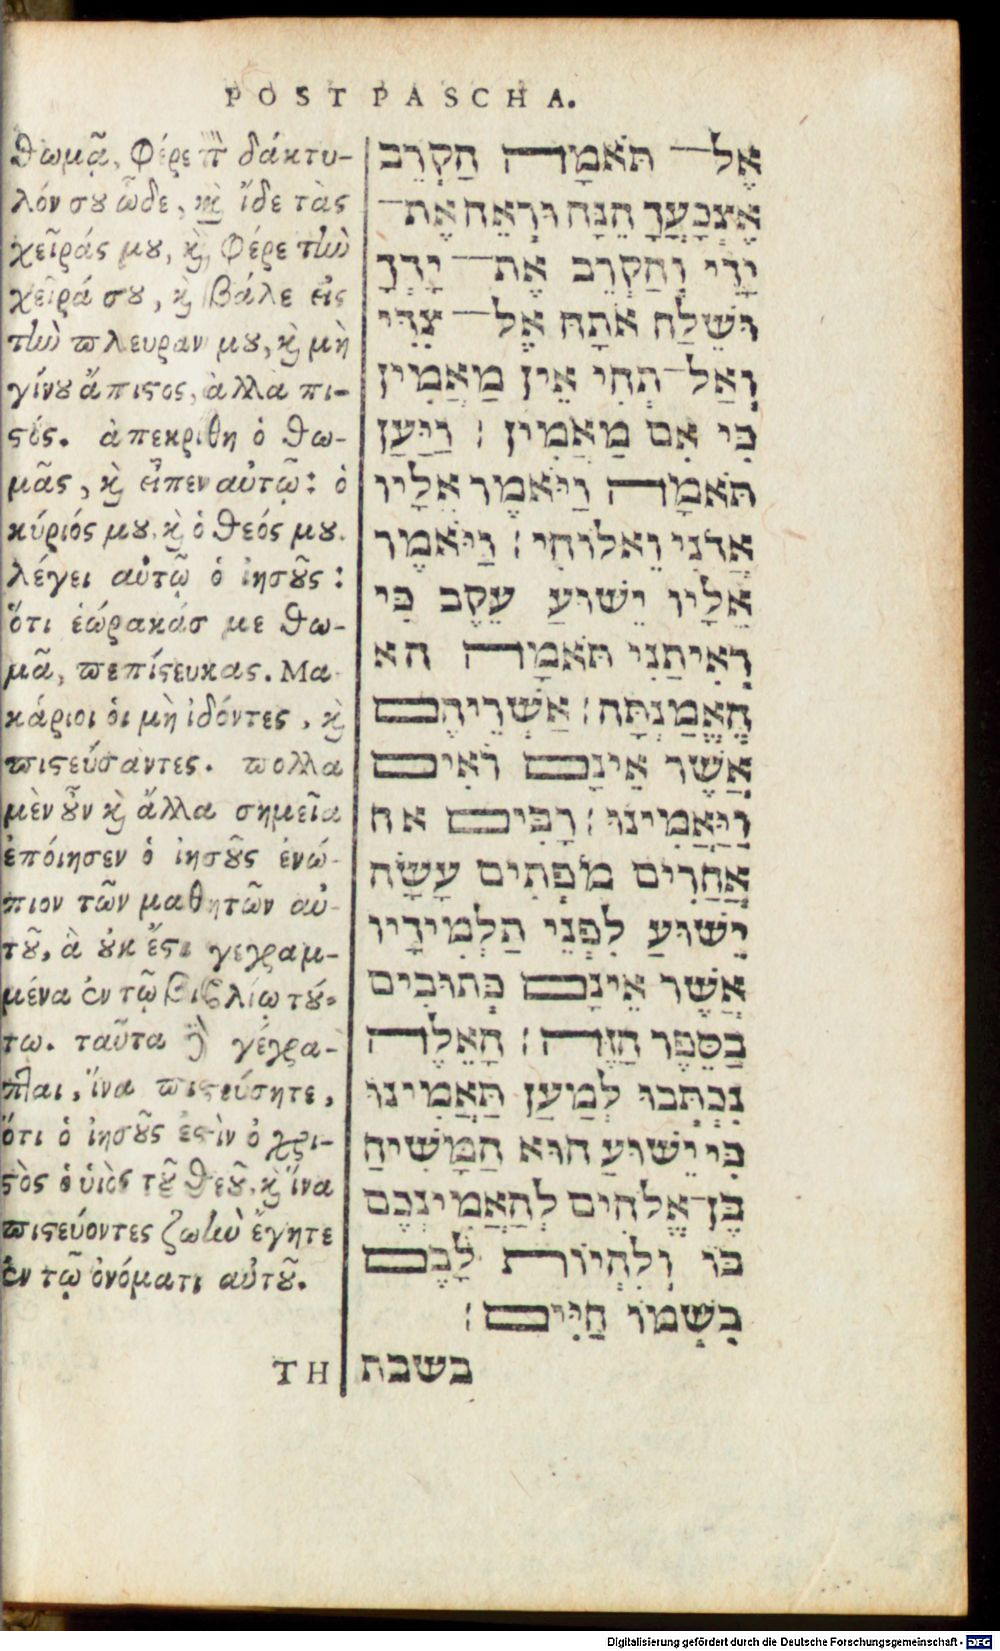 POST PASCHA.
θωμᾷ, Φέρε τὸν δάκτυ-
λόν σου ὧδε, καὶ ἴδε τὰς
χεῖράς μου, καὶ Φέρε τὴν
χεῖρά σου, καὶ βάλε εἰς
τὴν πλευραν μου, καὶ μὴ
γίνου ἄπιστος, ἀλλὰ πι-
στός. ἀπεκριθη ὁ θω-
μᾶς, καὶ εἶπεν αὐτῷ: ὁ
κύριός μου καὶ ὁ θεός μου.
λέγει αὐτῷ ὁ ἰησοῦς:
ὅτι ἑώρακάσ με θω-
μᾶ, πεπίστευκας. Μα-
κάριοι ὁι μὴ ἰδόντες, καὶ
πιστεύσαντες. πολλα
μὲν οὖν καὶ ἄλλα σημεῖα
ἐπόιησεν ὁ ἰησοῦς ἐνώ-
πιον τῶν μαθητῶν αὐ-
τοῦ, ἃ οὐκ ἔστι γεγραμ-
μένα ἐν τῷ βιβλίῳ τού-
τω. ταῦτα δὲ γέγρα-
πται, ἵνα πιστεύσητε,
ὅτι ὁ ἰησοῦς ἐστὶν ὁ χρι-
στὸς ὁ ὑιὸς τοῦ θεοῦ, καὶ ἵνα
πιστεύοντες ζωὴν ἔχητε
ἐν τῷ ὀνόματι αὐτοῦ.
ΤΗ
אֶל־ תֹּאמָה הַקְרֵב
אֶצְבָּעֲךָ הֵנָּה וּרְאֵה אֶת־
יָדַי וְהַקְרֵב אֶת־ יָדְךָ
וּשְׁלַח אֹתָהּ אֶל־ צִדִּי
וְאַל־תְּהִי אֵין מַאֲמִין
כִּי אִם מַאֲמִין׃ וַיַּעַן
תֹּאמָה וַיֹּאמֶר אֵלָיו
אֲדֹנִי וֵאלוֹהִי׃ וַיֹּאמֶר
אֵלָיו יֵשׁוּעַ עֵקֶב כִּי
רְאִיתַנִי תֹּאמָה הא
הֶאֱמַנְתָּה׃ אַשְׁרֵיהֶם
אֲשֶׁר אֵינָם רֹאִים
וַיַּאֲמִינוּ׃ רַבִּים אח
אֲחֵרִים מֹפְתִים עָשָׂה
יֵשׁוּעַ לִפְנֵי תַלְמִידָיו
אֲשֶׁר אֵינָם כְּתוּבִים
בַּסֵּפֶר הַזֶּה׃ הָאֵלֶּה
נִכְתְּבוּ לְמַעַן תַּאֲמִינוּ
כִּי יֵשׁוּעַ הוּא הַמָּשִׁיחַ
בֶּן־אֱלֹהִים לְהַאֲמִינְכֶם
בּוֹ וְלִהְיוֹת לָכֶם
בִּשְׁמוֹ חַיִּים׃
בשבת
Digitalisierung gefördert durch die Deutsche Forschungsgemeinschaft - DFG